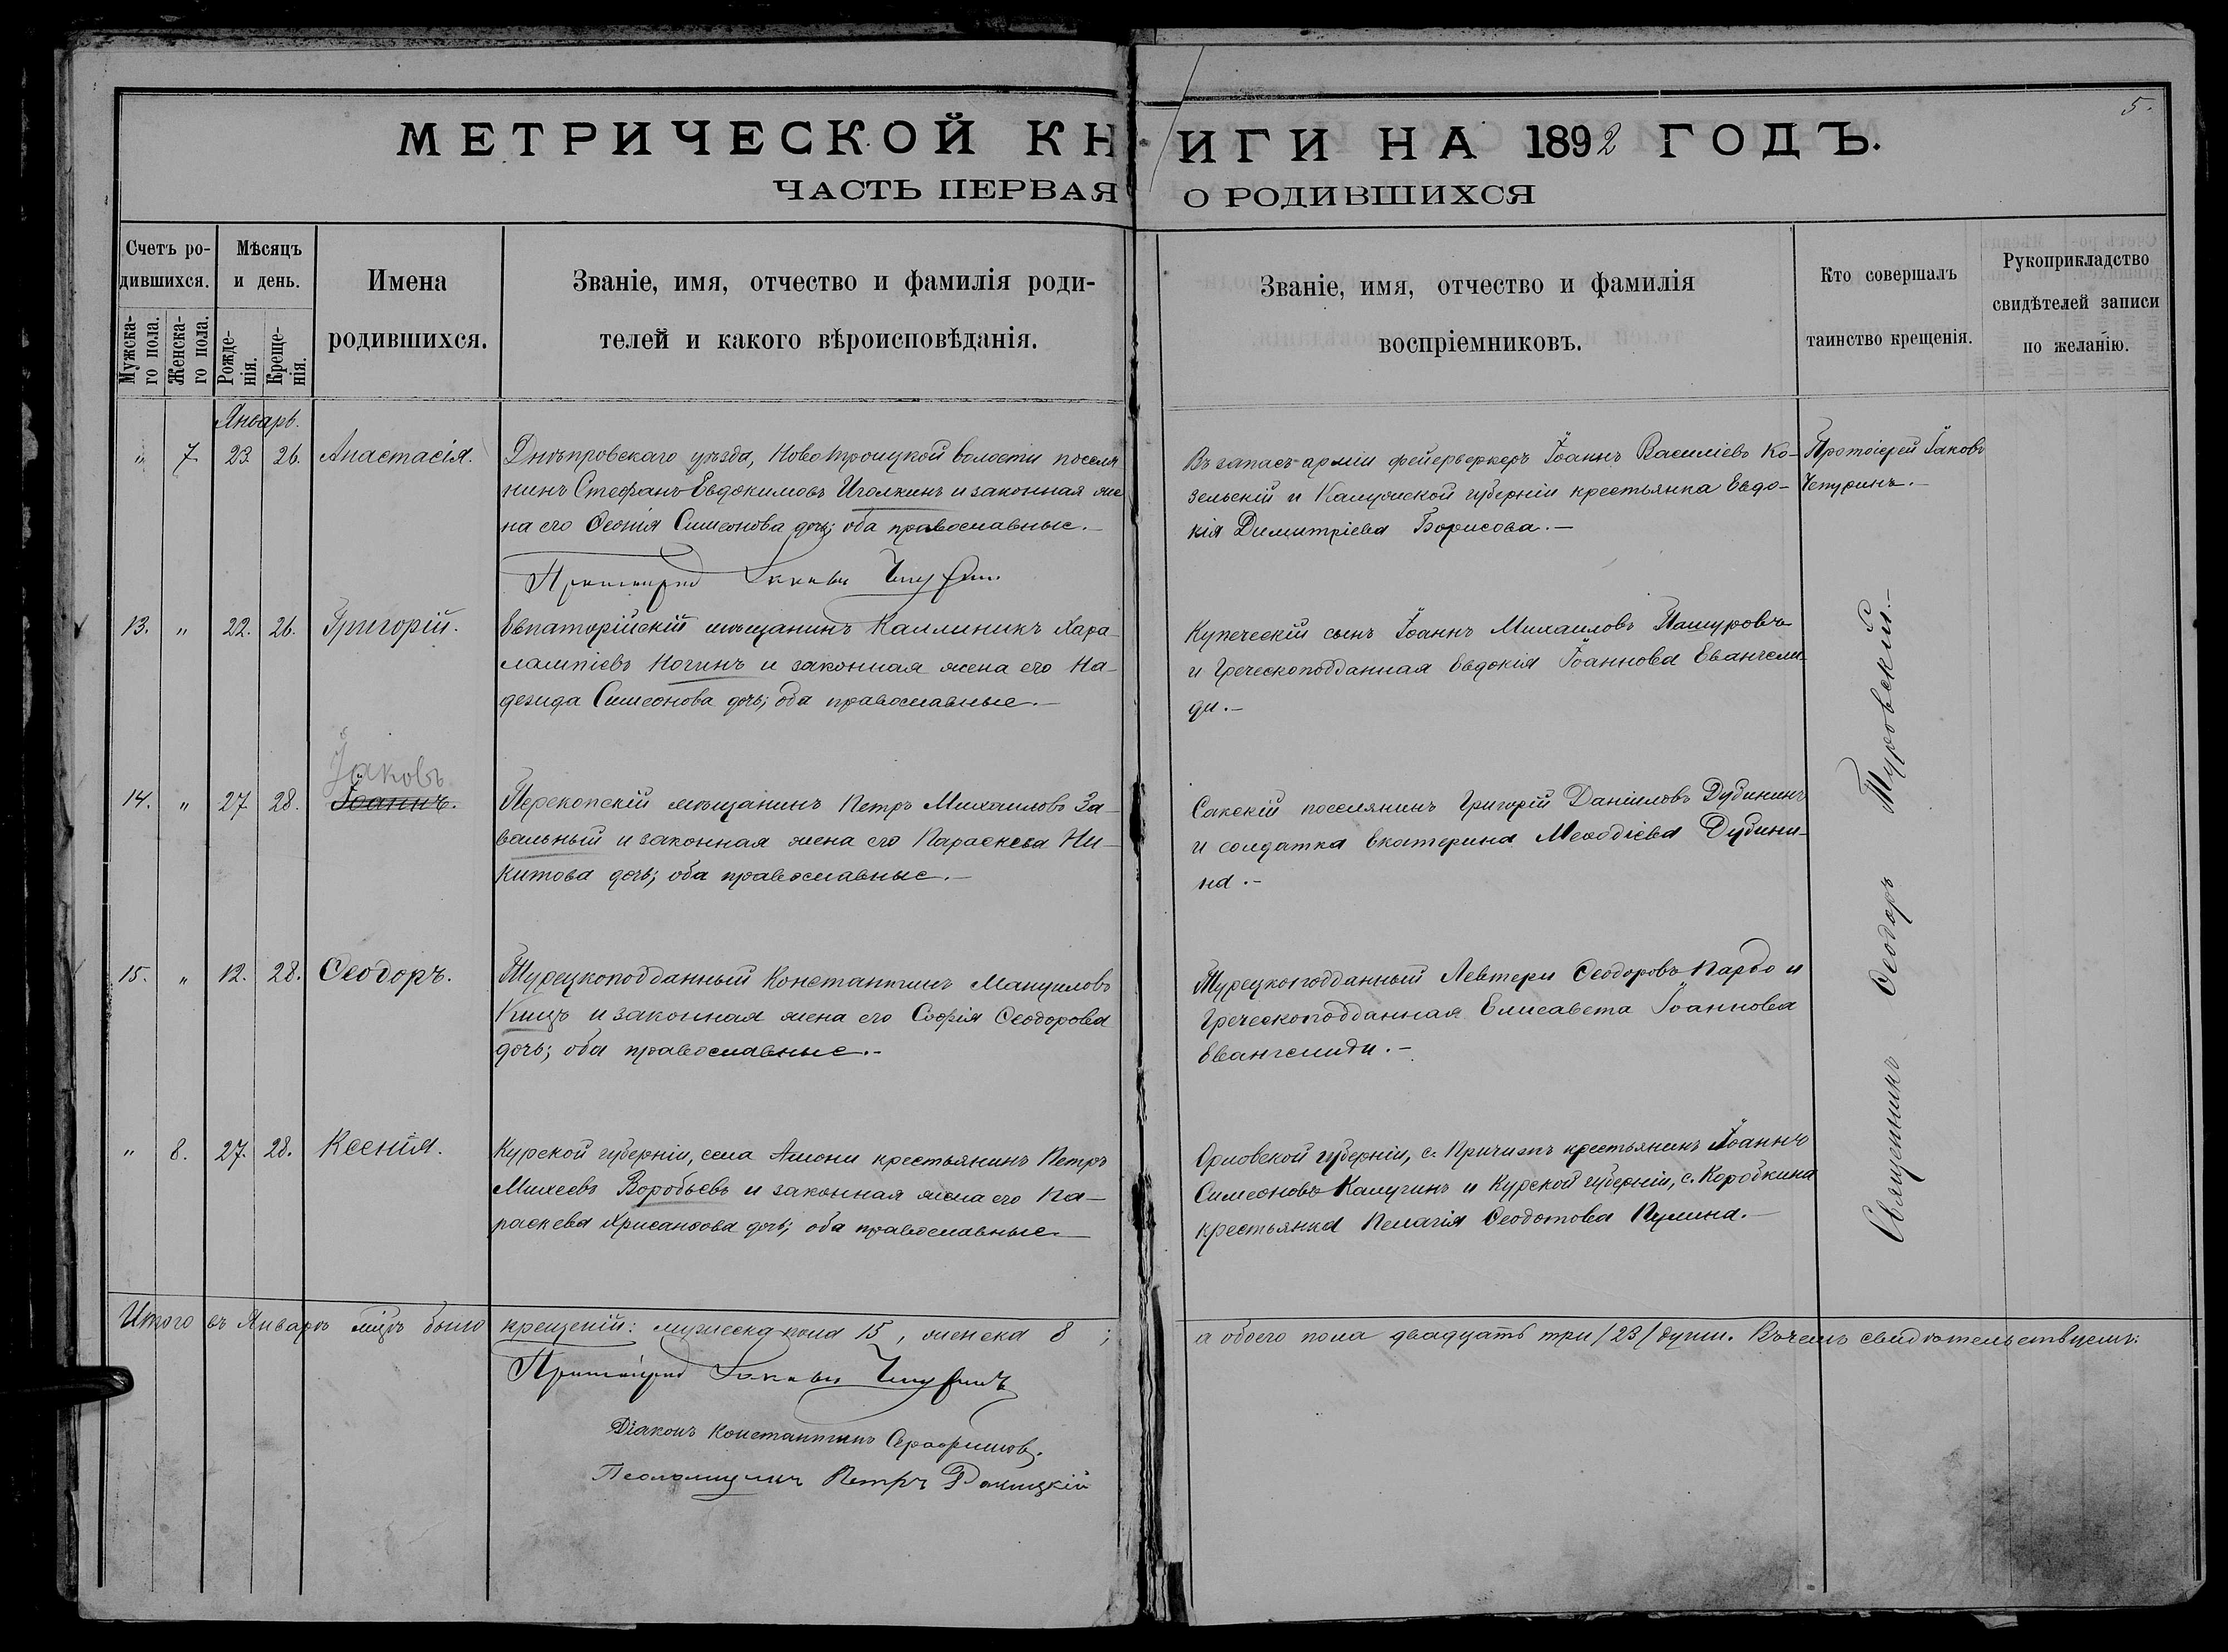 5.
МЕТРИЧЕСКОЙ КНИГИ НА 1892 ГОДЪ.
ЧАСТЬ ПЕРВАЯ О РОДИВШИХСЯ
Счетъ ро-
дившихся.
Мужска-
го пола.
Женска-
го пола.
Мѣсяцъ
и день.
Рожде-
нія.
Креще-
нія.
Имена
родившихся.
Званіе, имя, отчество и фамилія роди-
телей и какого вѣроисповѣданія.
Званіе, имя, отчество и фамилія
воспріемниковъ.
Кто совершалъ
таинство крещенія.
Рукоприкладство
свидѣтелей записи
по желанію.
Январь.
" 7. 23. 26. Анастасія.
Днѣпровскаго уѣзда, Ново Троицкой волости поселя
нинъ Стефанъ Евдокимовъ Иголкинъ и законная же
на его Ѳеонія Симеонова дочь; оба православные.—
Протоіерей Іаковъ Чепуринъ
Въ запасѣ арміи фейерверкеръ Іоаннъ Василіевъ Ко-
зельскій и Калужской губерніи крестьянка Евдо-
кія Димитріева Борисова.—
Протоіерей Іаковъ
Чепуринъ.—
13. " 22. 26. Григорій.
Евпаторійскій мѣщанинъ Каллиникъ Хара-
лампіевъ Ногинъ и законная жена его На-
дежда Симеонова дочь; оба православные.—
Купеческій сынъ Іоаннъ Михаиловъ Пашуровъ
и Греческоподданная Евдокія Іоаннова Евангели-
ди.—
Іаковъ
14. " 27. 28. Іоаннъ.
Перекопскій мѣщанинъ Петръ Михаиловъ За-
вальный и законная жена его Параскева Ни-
китова дочь; оба православные.—
Сакскій поселянинъ Григорій Даніиловъ Дубининъ
и солдатка Екатерина Меѳодіева Дубини-
на.—
15. " 12. 28. Ѳеодоръ.
Турецкоподданный Константинъ Мануиловъ
Кицъ и законная жена его Софія Ѳеодорова
дочь; оба православные.—
Турецкоподданный Левтери Ѳеодоровъ Пардо и
Греческоподданная Елисавета Іоаннова
Евангелиди.—
" 8. 27. 28. Ксенія.
Курской губерніи, села Амони крестьянинъ Петръ
Михеевъ Воробьевъ и законная жена его Па-
раскева Хрисанѳова дочь; оба православные.—
Орловской губерніи, с. крестьянинъ Іоаннъ
Симеоновъ Калугинъ и Курской губерніи, с. Коробкина
крестьянка Пелагія Ѳеодотова Пулина.—
Священникъ Ѳеодоръ Туровскій.—
Итого въ Январѣ мцѣ было крещеній: мужеска пола 15, женска 8; а обоего пола двадцать три /23/ души. Въ чемъ свидѣтельствуемъ:
Протоіерей Іаковъ Чепуринъ
Діаконъ Константинъ Серафимовъ.
Псаломщикъ Петръ Ракицкій